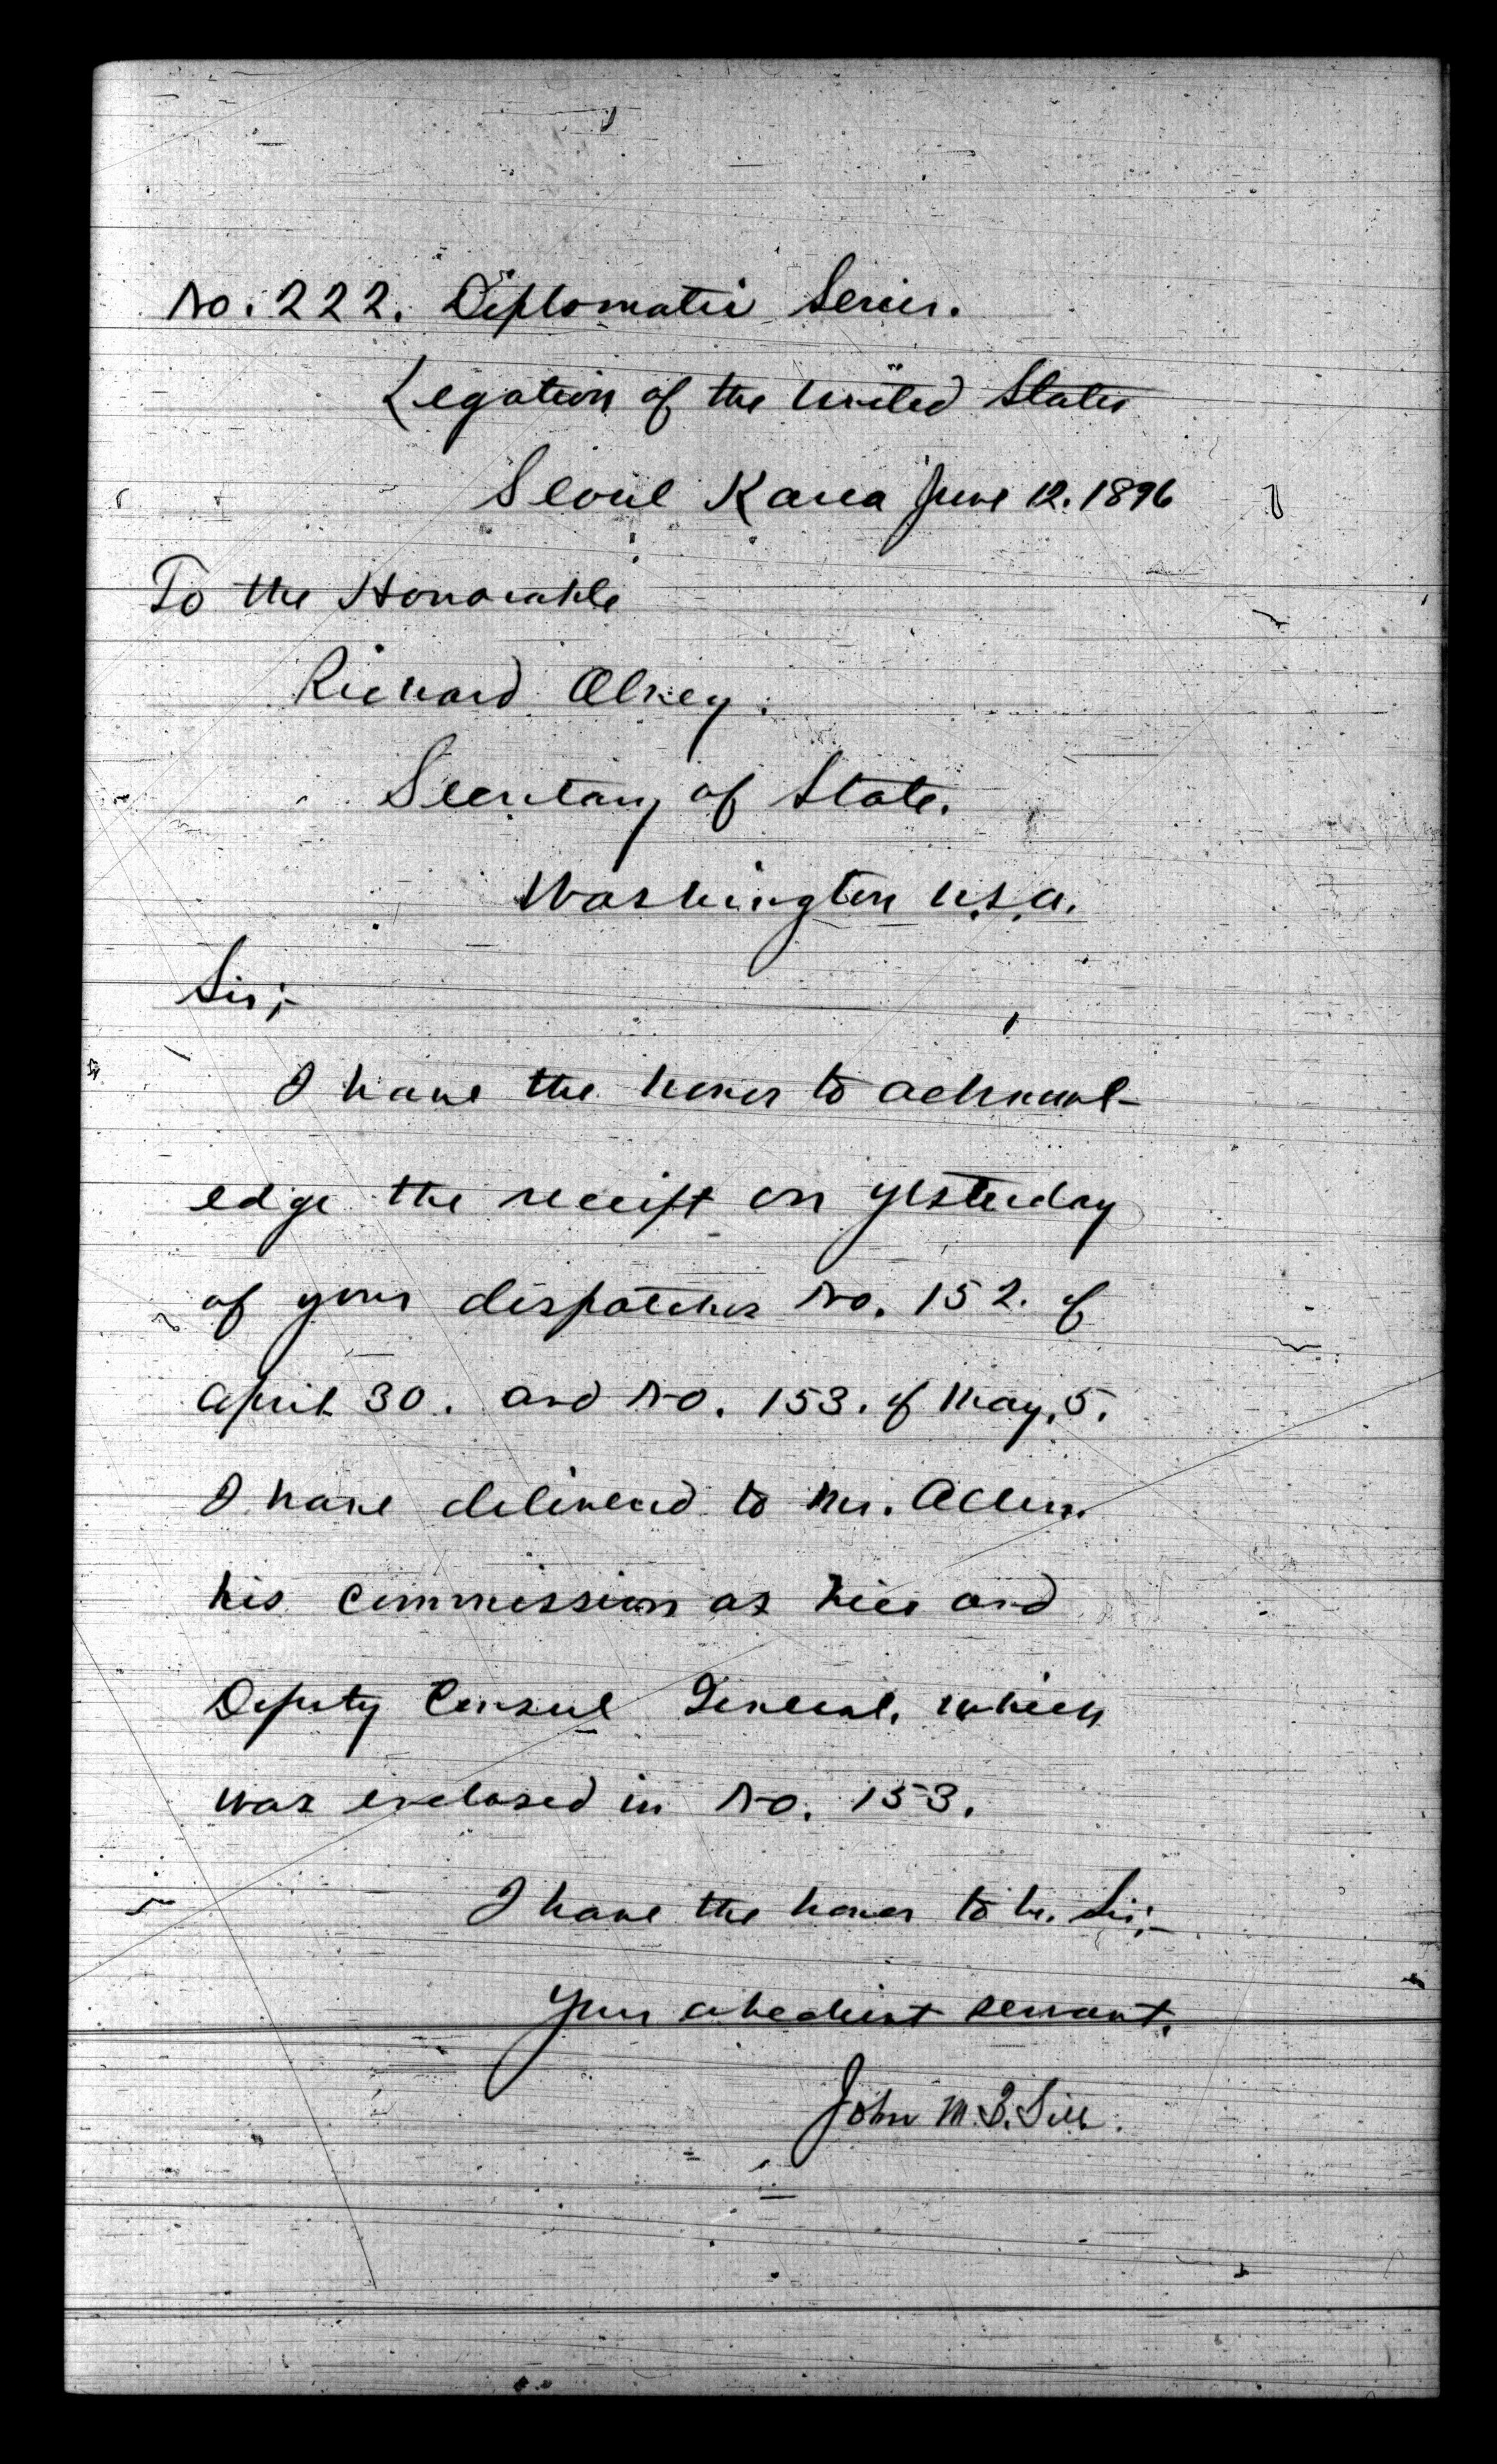 No. 222. Diplomatic Series.
Legation of the United States
Seoul Korea June 12. 1896
To the Honorable
Richard Olney.
Secretary of State.
Washington U.S.A.
Sir;-
I have the honor to acknowl-
edge the receipt on yesterday
of your dispatches No. 152. of
April 30. and No. 153. of May. 5.
I have delivered to Mr. Allen.
his commission as Vice and
Deputy Consul General, which
was enclosed in No. 153.
I have the honor to be. Sir;-
Your obedient servant.
John M. B. Sill.